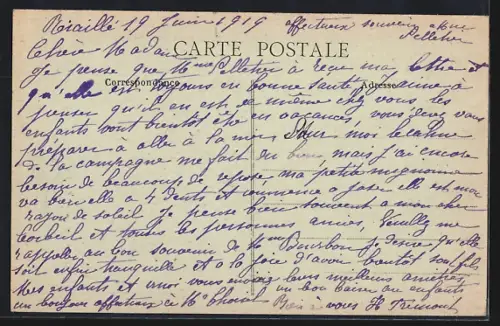 Riaillé 19 Juin 1919 affectueux souvenir à Mme
Pelletier
Chère Madame
CARTE POSTALE
Je pense que Mme Pelletier a reçu ma lettre et
Correspondance
Adresse
qu'elle est toujours en bonne santé J'aime à
penser qu'il en est de même chez vous les
enfants vont bientôt être en vacances, vous devez vous
préparer a aller à la mer, Pour moi le calme
de la campagne me fait du bien, mais j'ai encore
besoin de beaucoup de repose ma petite mignonne
va bien elle a 4 dents et commence a jaser elle est mon
rayon de soleil Je pense bien souvent a mon cher
Corbeil et toutes les personnes amies, Veuillez me
rappeler au bon souvenir de Mme Bourbon je pense qu'elle
soit enfin tranquille et a la joie d'avoir bientôt son fils
Mes enfants et moi vous envoie leurs meilleurs amitiés
un bonjour affectueux à Me un bon baiser au enfants
Bien à vous